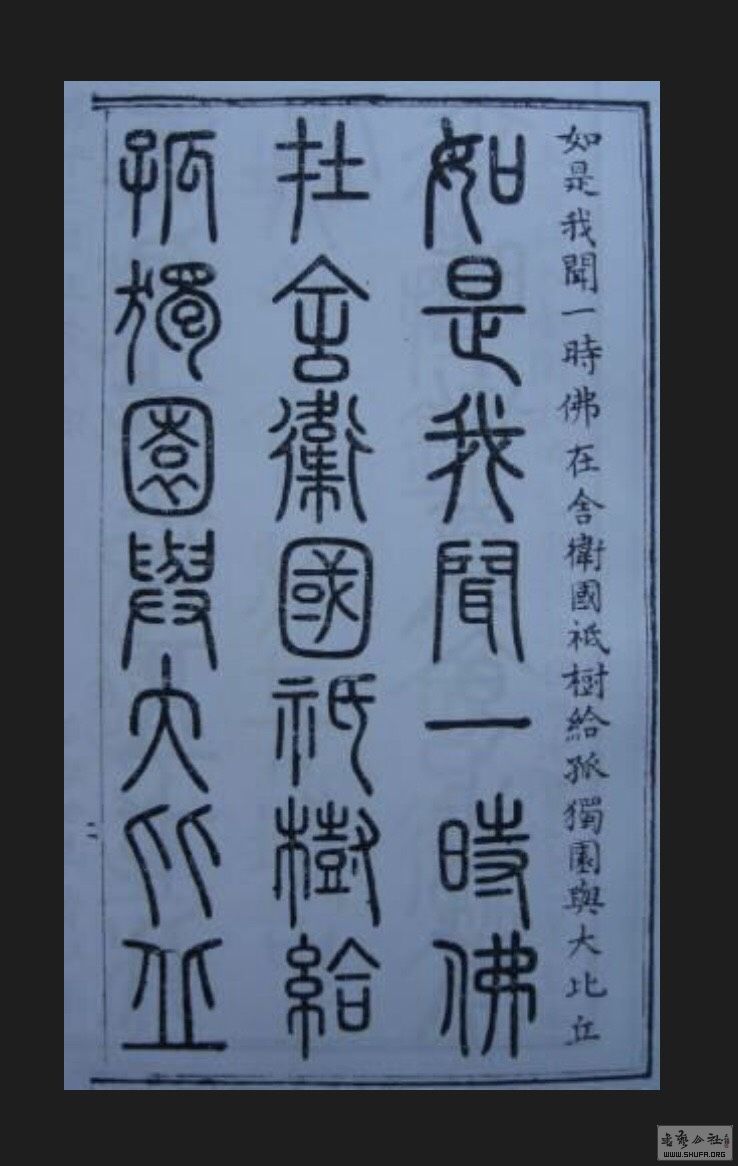 如是我聞一時佛在舍衛國祗樹給孤獨園與大比丘
如是我聞一時佛
在舍衛國祗樹給
孤獨園與大比丘
WWW.SHUFA.ORG